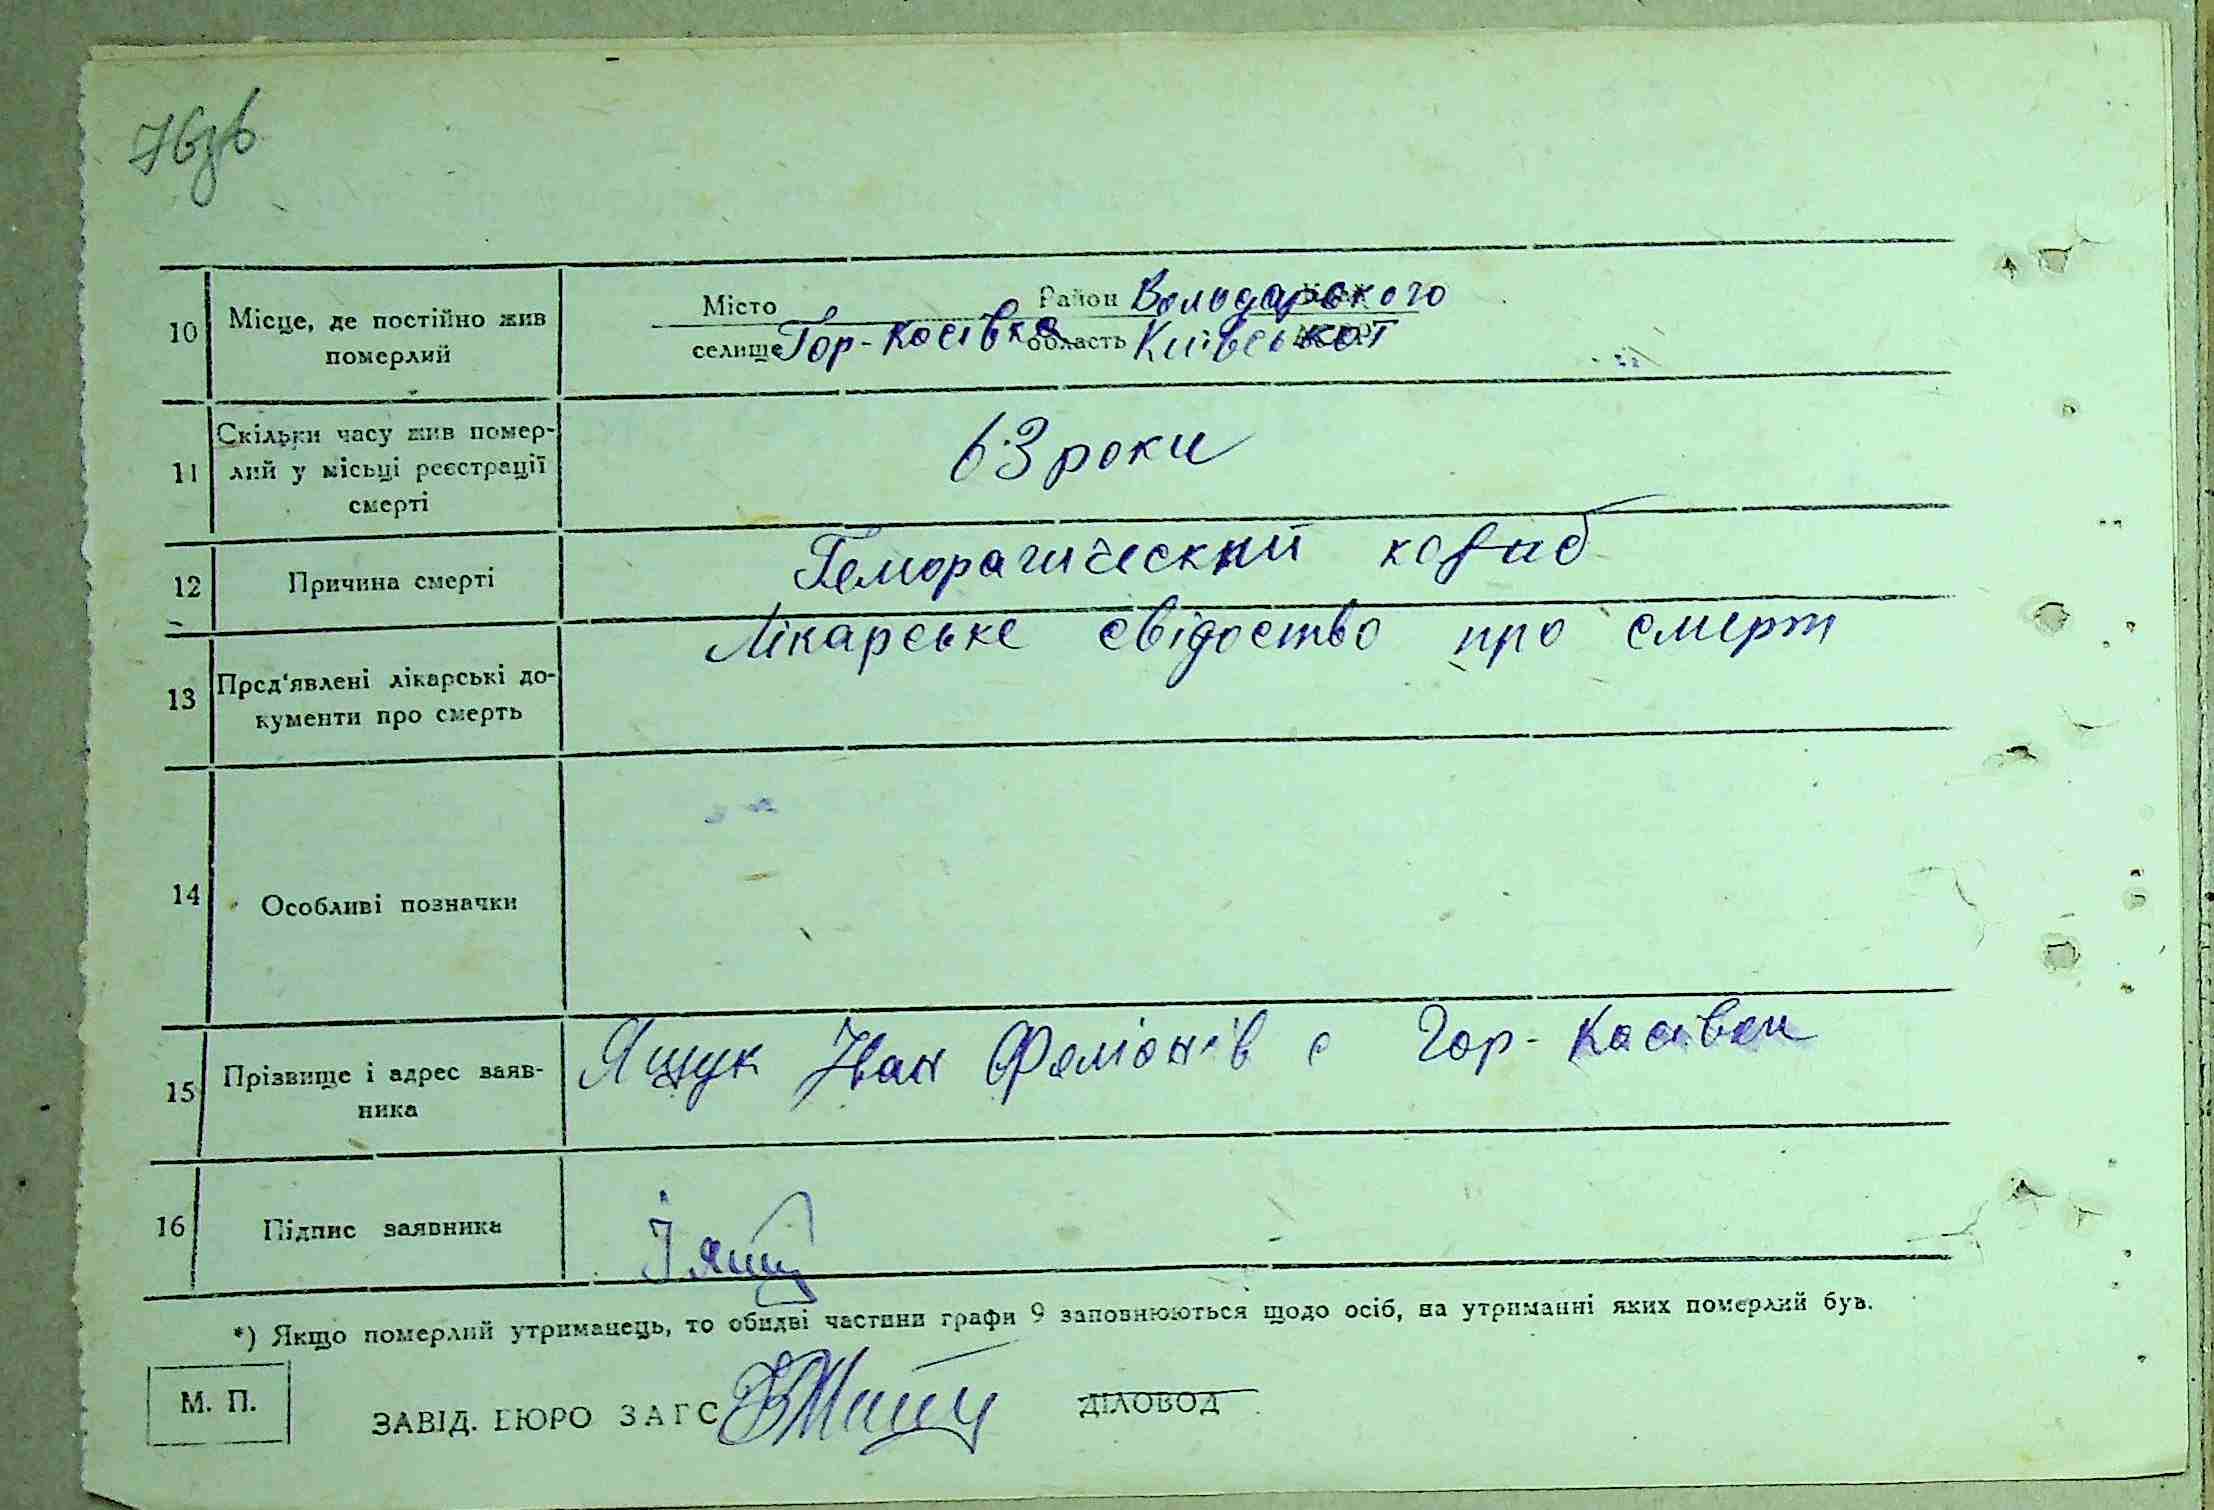 10 Місце, де постійно жив
померлий
Місто Район Володарского
селище Гор-Косівка область Київської
11 Скільки часу жив помер-
лий у місьці реєстрації
смерті
63 роки
12 Причина смерті
Геморагический
13 Пред'явлені лікарські до-
кументи про смерть
Лікарське свідоство про смерт
14 Особливі позначки
15 Прізвище і адрес заяв-
ника
Ящук Іван с Гор-Косівки
16 Підпис заявника
*) Якщо померлий утриманець, то обидві частини графи 9 заповнюються щодо осіб, на утриманні яких померлий був.
М. П.
ЗАВІД. БЮРО ЗАГС ДІЛОВОД